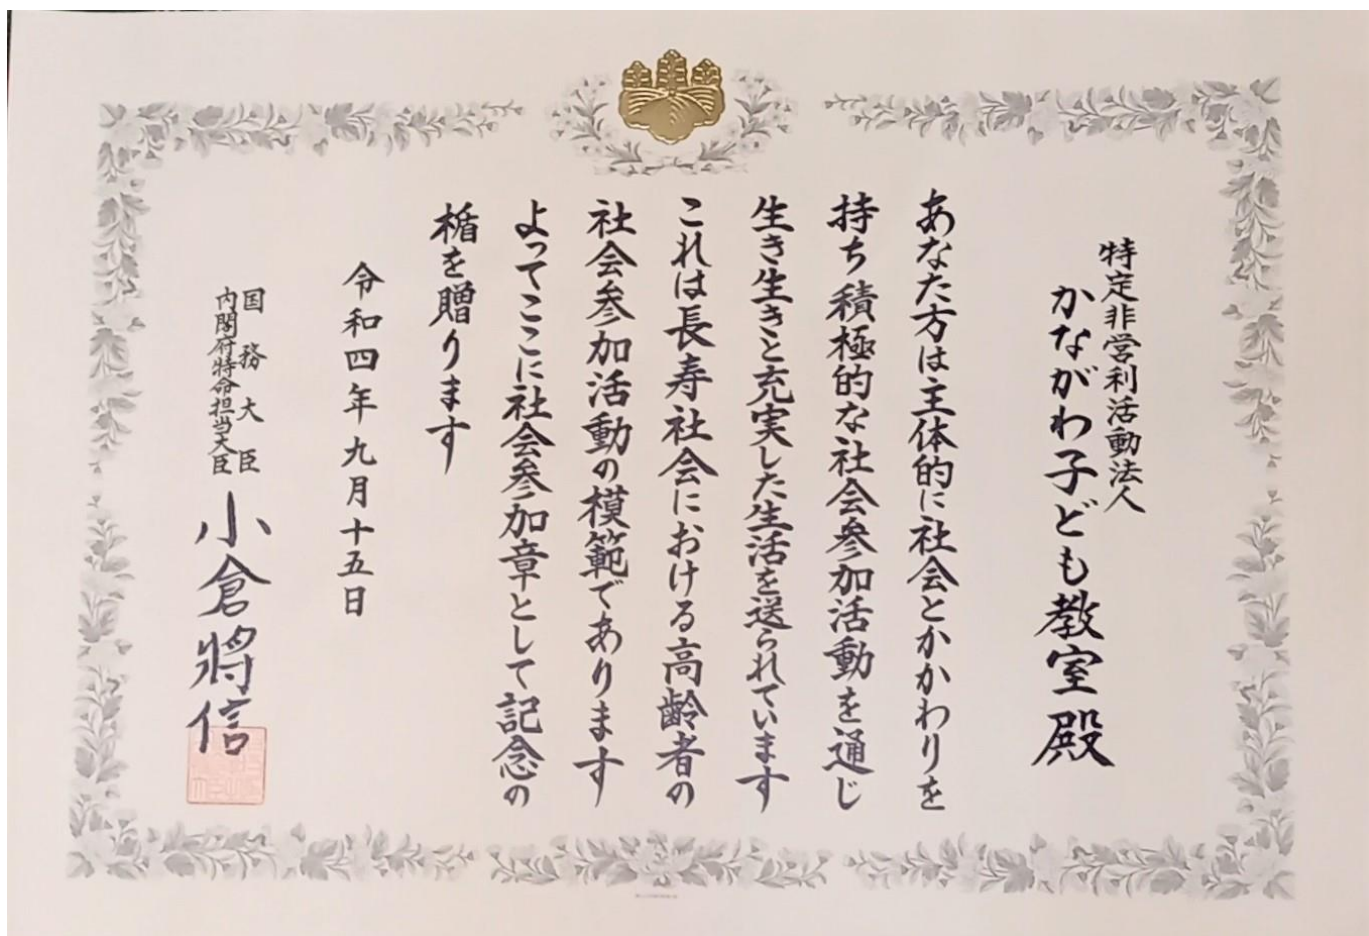 特定非営利活動法人
かながわ子ども教室殿
あなた方は主体的に社会とかかわりを
持ち積極的な社会参加活動を通じ
生き生きと充実した生活を送られています
これは長寿社会における高齢者の
社会参加活動の模範であります
よってここに社会参加章として記念の
楯を贈ります
令和四年九月十五日
国務大臣
内閣府特命担当大臣
小倉將信